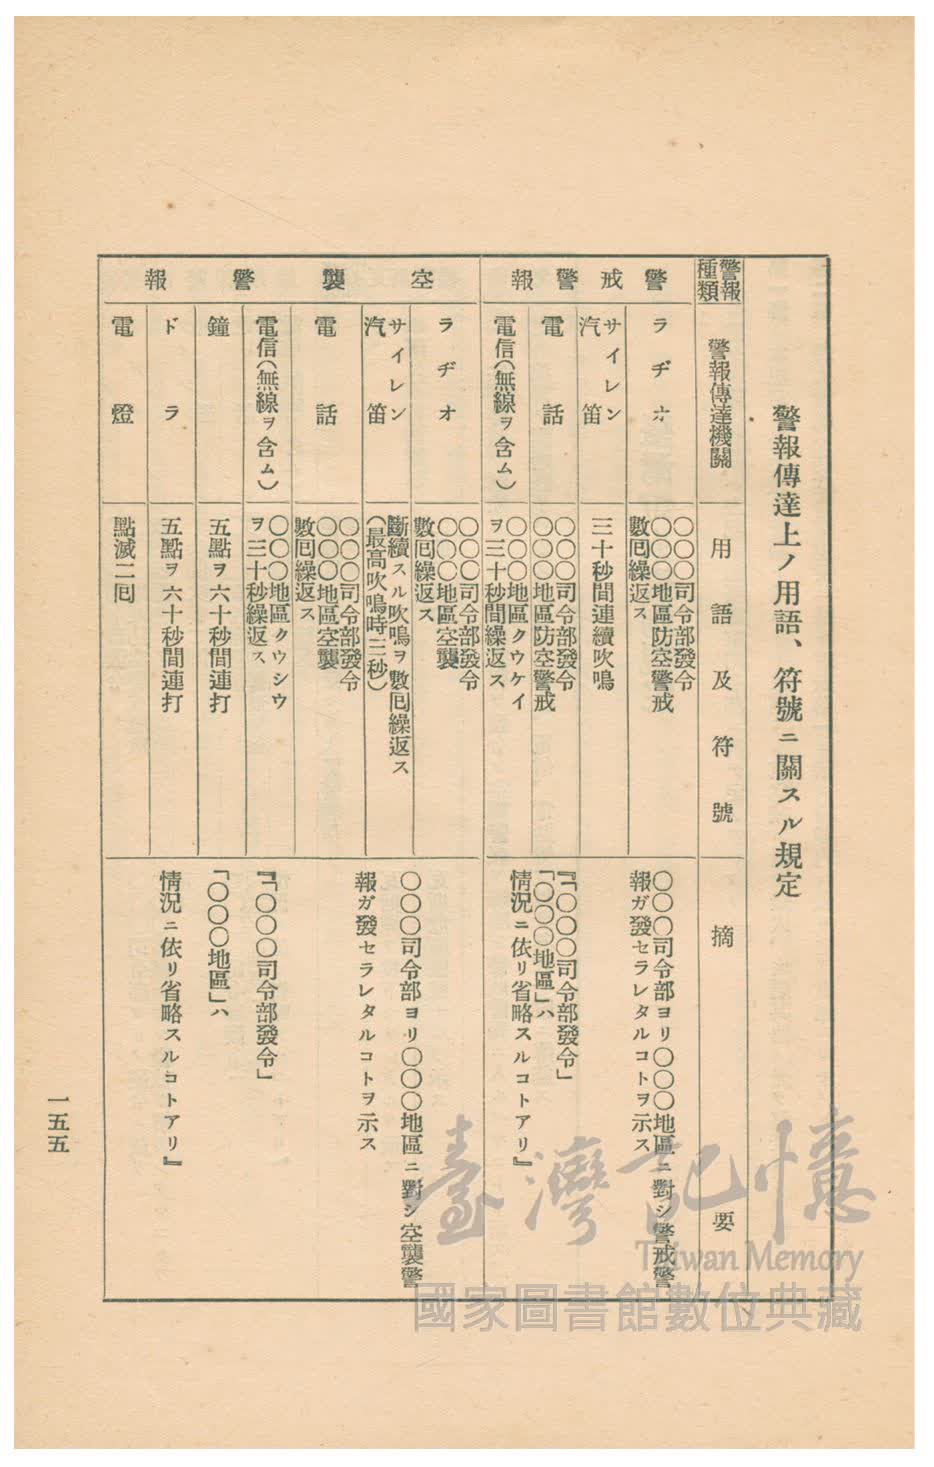 警報傳達上ノ用語、符號ニ關スル規定
警報種類
警報傳達機關
用語及符號
摘要
警戒警報
ラヂオ
〇〇〇司令部發令
〇〇〇地區防空警戒
數回繰返ス
サイレン
汽笛
三十秒間連續吹鳴
電話
〇〇〇司令部發令
〇〇〇地區防空警戒
電信(無線ヲ含ム)
〇〇〇地區クウケイ
ヲ三十秒間繰返ス
〇〇〇司令部ヨリ〇〇〇地區ニ對シ警戒警
報ガ發セラレタルコトヲ示ス
『「〇〇〇司令部發令」
「〇〇〇地區」ハ
情況ニ依リ省略スルコトアリ』
空襲警報
ラヂオ
〇〇〇司令部發令
〇〇〇地區空襲
數回繰返ス
サイレン
汽笛
斷續スル吹鳴ヲ數回繰返ス
(最高吹鳴時三秒)
電話
〇〇〇司令部發令
〇〇〇地區空襲
數回繰返ス
電信(無線ヲ含ム)
〇〇〇地區クウシウ
ヲ三十秒繰返ス
鐘
五點ヲ六十秒間連打
ドラ
五點ヲ六十秒間連打
電燈
點滅二回
〇〇〇司令部ヨリ〇〇〇地區ニ對シ空襲警
報ガ發セラレタルコトヲ示ス
『「〇〇〇司令部發令」
「〇〇〇地區」ハ
情況ニ依リ省略スルコトアリ』
一五五
臺灣記憶
Taiwan Memory
國家圖書館數位典藏